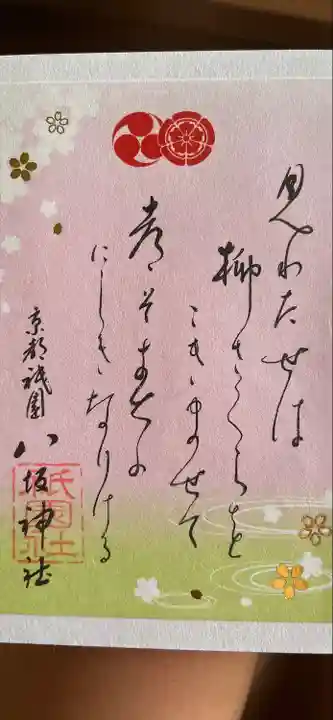 見わたせは
柳さくらを
こきませて
都そはるの
にしきなりける
京都祇園
八坂神社